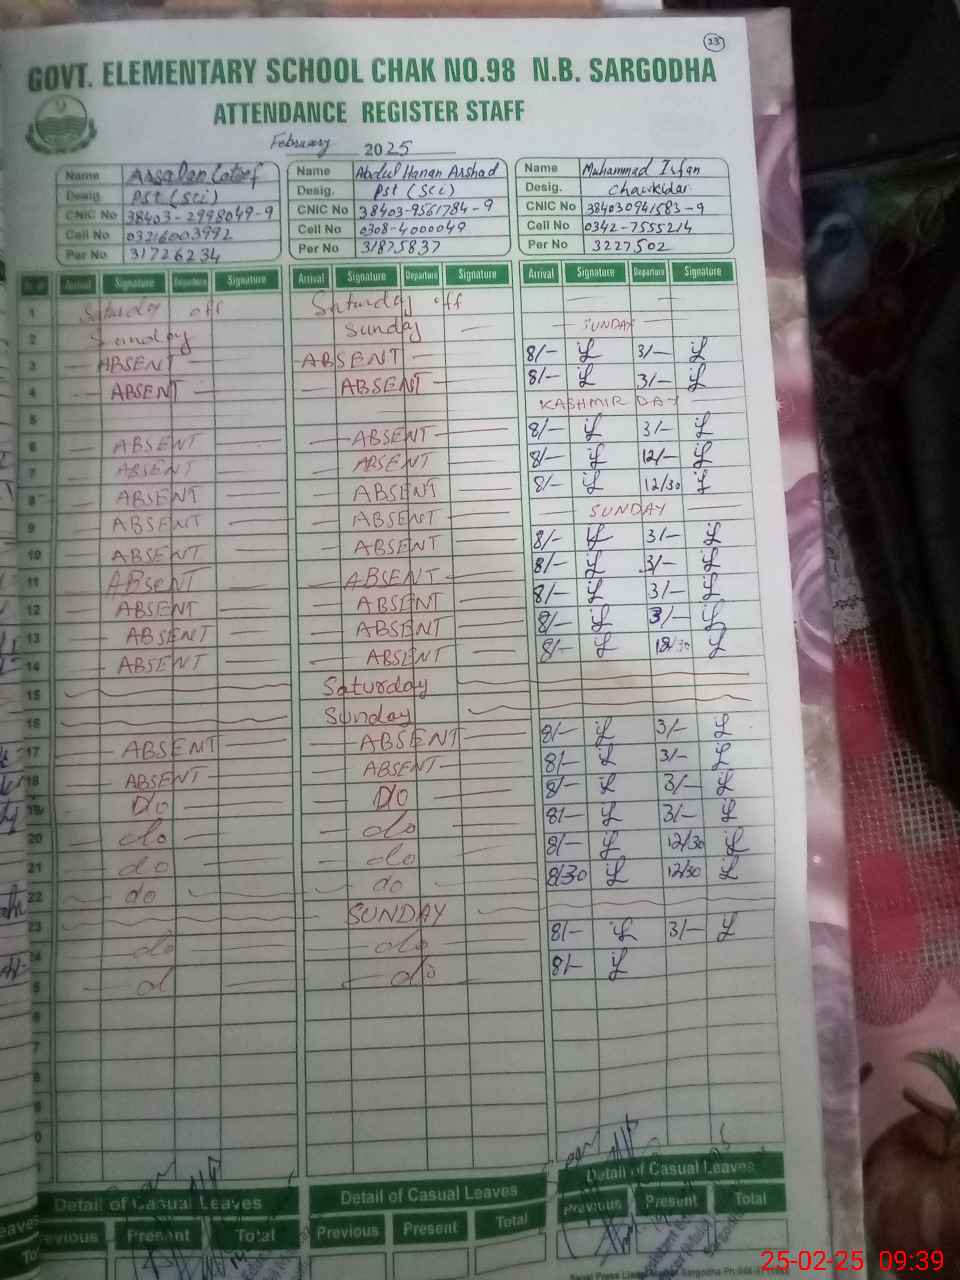 23
GOVT. ELEMENTARY SCHOOL CHAK NO.98 N.B. SARGODHA
ATTENDANCE REGISTER STAFF
February 2025
Name Arsalan Lateef Name Abdul Hanan Arshad Name Muhammad Irfan
Desig. PST (Sci) Desig. PST (Sci) Desig. Chawkidar
CNIC No 38403-2998049-9 CNIC No 38403-9561784-9 CNIC No 384030941583-9
Cell No 03216003992 Cell No 0308-4000049 Cell No 0342-7555214
Per No 31726234 Per No 31875837 Per No 3227502
Arrival Signature Departure Signature Arrival Signature Departure Signature Arrival Signature Departure Signature
1 Saturday off Saturday off
2 Sunday Sunday SUNDAY
3 ABSENT ABSENT 8/- 3/-
4 ABSENT ABSENT 8/- 3/-
5 KASHMIR DAY
6 ABSENT ABSENT 8/- 3/-
7 ABSENT ABSENT 8/- 12/-
8 ABSENT ABSENT 8/- 12/30
9 ABSENT ABSENT SUNDAY
10 ABSENT ABSENT 8/- 3/-
11 ABSENT ABSENT 8/- 3/-
12 ABSENT ABSENT 8/- 3/-
13 ABSENT ABSENT 8/- 3/-
14 ABSENT ABSENT 8/- 12/30
15 Saturday
16 Sunday
17 ABSENT ABSENT 8/- 3/-
18 ABSENT ABSENT 8/- 3/-
19 Do Do 8/- 3/-
20 do do 8/- 3/-
21 do do 8/- 12/30
22 do do 8/30 12/30
23 SUNDAY
do do 8/- 3/-
d do 8/-
Detail of Casual Leaves Detail of Casual Leaves Detail of Casual Leaves
Previous Present Total Previous Present Total Previous Present Total
25-02-25 09:39